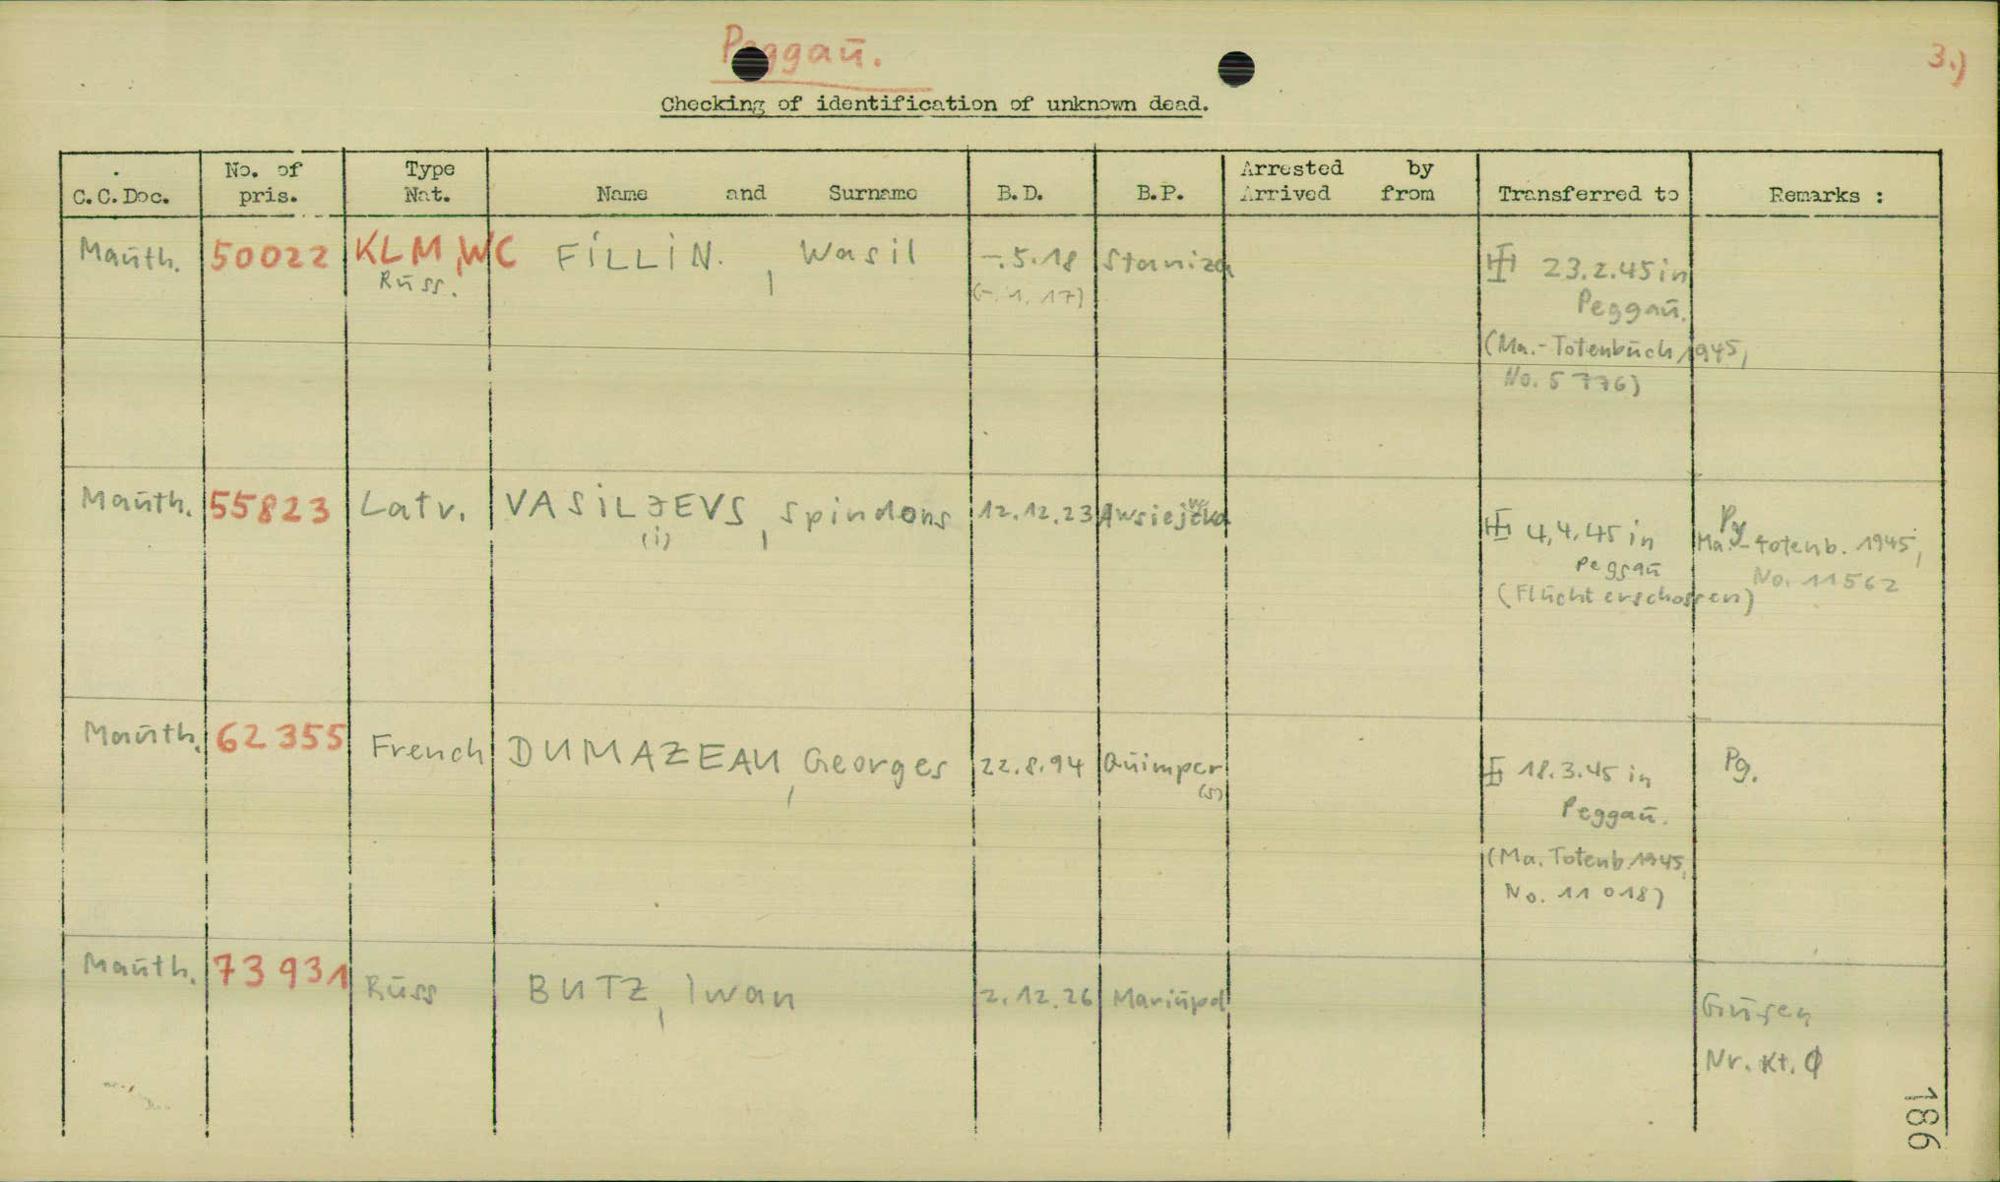 Peggaŭ.
3.)
Checking of identification of unknown dead.
C.C.Doc. No. of pris. Type Nat. Name and Surname B.D. B.P. Arrested by Arrived from Transferred to Remarks :
Maŭth. 50022 KLM, WC FILLIN, Wasil -.5.18 Staniza 23.2.45 in
Rŭss. (-.1.17) Peggaŭ.
(Ma.-Totenbŭch 1945,
No. 5776)
Maŭth. 55823 Latv. VASILJEVS, Spindons 12.12.23 4.4.45 in Pg
(i) Peggaŭ Ma.-Totenb. 1945,
(Flŭcht erschossen) No. 11562
Maŭth. 62355 French DUMAZEAU, Georges 22.8.94 Qŭimper 18.3.45 in Pg.
(s) Peggaŭ.
(Ma. Totenb. 1945,
No. 11018)
Maŭth. 73931 Rŭss BUTZ, Iwan 2.12.26 Mariŭpol Gŭsen
Nr. Kt. Φ
186